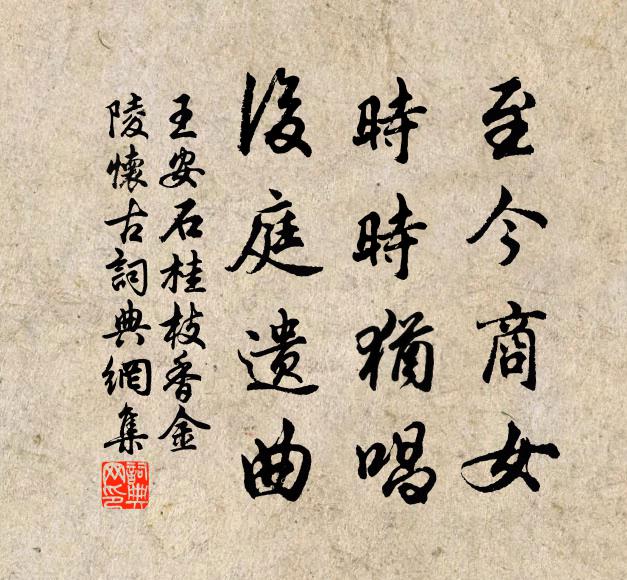 至今商女
時時猶唱
後庭遺曲
王安石桂枝香金
陵懷古詞典網集
詞典网印